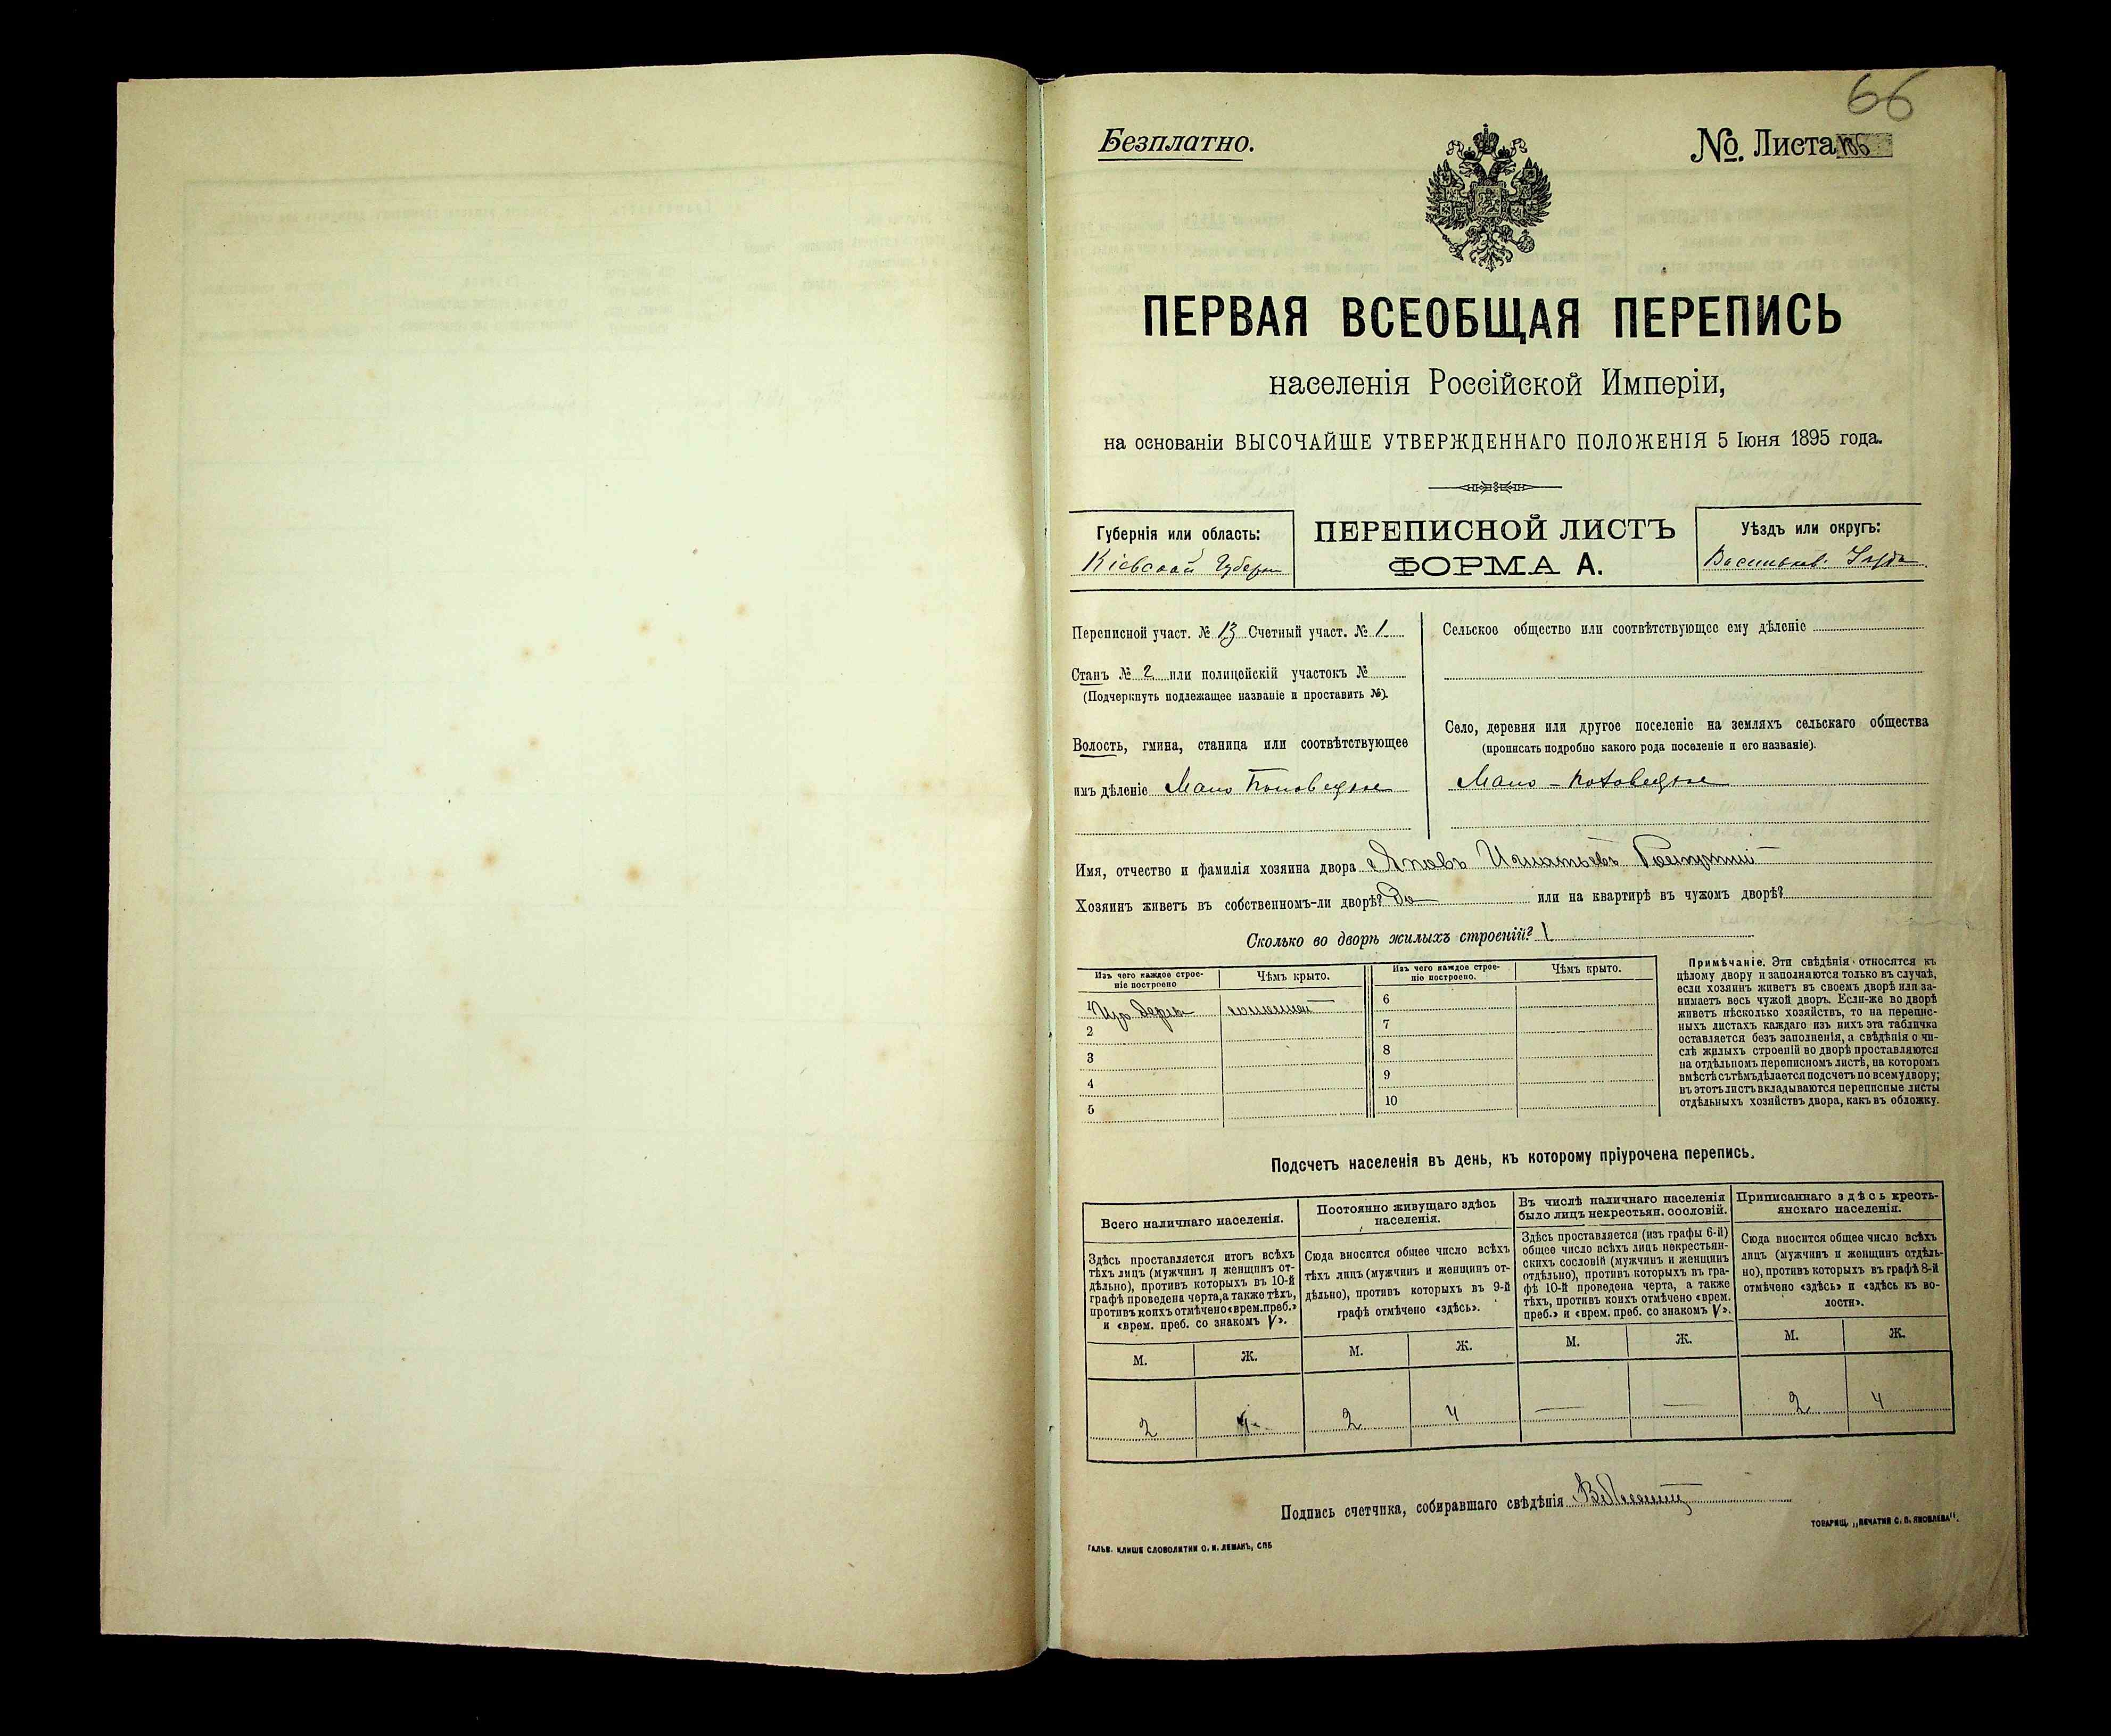 66
Безплатно.
№. Листа 186
ПЕРВАЯ ВСЕОБЩАЯ ПЕРЕПИСЬ
населенія Россійской Имперіи,
на основаніи ВЫСОЧАЙШЕ УТВЕРЖДЕННАГО ПОЛОЖЕНІЯ 5 Іюня 1895 года.
Губернія или область:
Кіевской Губерн
ПЕРЕПИСНОЙ ЛИСТЪ
ФОРМА А.
Уѣздъ или округъ:
Васильков. Уѣзда
Переписной участ. № 13 Счетный участ. № 1
Станъ № 2 или полицейскій участокъ №
(Подчеркнуть подлежащее названіе и проставить №).
Волость, гмина, станица или соотвѣтствующее
имъ дѣленіе Мало Половецкое
Сельское общество или соотвѣтствующее ему дѣленіе
Село, деревня или другое поселеніе на земляхъ сельскаго общества
(прописать подробно какого рода поселеніе и его названіе).
Мало - Половецкое
Имя, отчество и фамилія хозяина двора Яковъ Игнатьевъ
Хозяинъ живетъ въ собственномъ-ли дворѣ? Да или на квартирѣ въ чужомъ дворѣ?
Сколько во дворѣ жилыхъ строеній? 1
Изъ чего каждое строе-
ніе построено
Чѣмъ крыто.
Изъ чего каждое строе-
ніе построено.
Чѣмъ крыто.
1 Изъ дерева соломой
2
3
4
5
6
7
8
9
10
Примѣчаніе. Эти свѣдѣнія относятся къ
цѣлому двору и заполняются только въ случаѣ,
если хозяинъ живетъ въ своемъ дворѣ или за-
нимаетъ весь чужой дворъ. Если-же во дворѣ
живетъ нѣсколько хозяйствъ, то на перепис-
ныхъ листахъ каждаго изъ нихъ эта табличка
оставляется безъ заполненія, а свѣдѣнія о чи-
слѣ жилыхъ строеній во дворѣ проставляются
на отдѣльномъ переписномъ листѣ, на которомъ
вмѣстѣ съ тѣмъ дѣлается подсчетъ по всему двору;
въ этотъ листъ вкладываются переписные листы
отдѣльныхъ хозяйствъ двора, какъ въ обложку.
Подсчетъ населенія въ день, къ которому пріурочена перепись.
Всего наличнаго населенія.
Здѣсь проставляется итогъ всѣхъ
тѣхъ лицъ (мужчинъ и женщинъ от-
дѣльно), противъ которыхъ въ 10-й
графѣ проведена черта, а также тѣхъ,
противъ коихъ отмѣчено «врем. преб.»
и «врем. преб. со знакомъ V».
М. Ж.
2 4
Постоянно живущаго здѣсь
населенія.
Сюда вносится общее число всѣхъ
тѣхъ лицъ (мужчинъ и женщинъ от-
дѣльно), противъ которыхъ въ 9-й
графѣ отмѣчено «здѣсь».
М. Ж.
2 4
Въ числѣ наличнаго населенія
было лицъ некрестьян. сословій.
Здѣсь проставляется (изъ графы 6-й)
общее число всѣхъ лицъ некрестьян-
скихъ сословій (мужчинъ и женщинъ
отдѣльно), противъ которыхъ въ гра-
фѣ 10-й проведена черта, а также
тѣхъ, противъ коихъ отмѣчено «врем.
преб.» и «врем. преб. со знакомъ V».
М. Ж.
— —
Приписаннаго здѣсь кресть-
янскаго населенія.
Сюда вносится общее число всѣхъ
лицъ (мужчинъ и женщинъ отдѣль-
но), противъ которыхъ въ графѣ 8-й
отмѣчено «здѣсь» и «здѣсь въ во-
лости».
М. Ж.
2 4
Подпись счетчика, собиравшаго свѣдѣнія
ГАЛЬВ. КЛИШЕ СЛОВОЛИТНИ О. И. ЛЕМАНЪ, СПБ
ТОВАРИЩ. „ПЕЧАТНЯ С. П. ЯКОВЛЕВА".